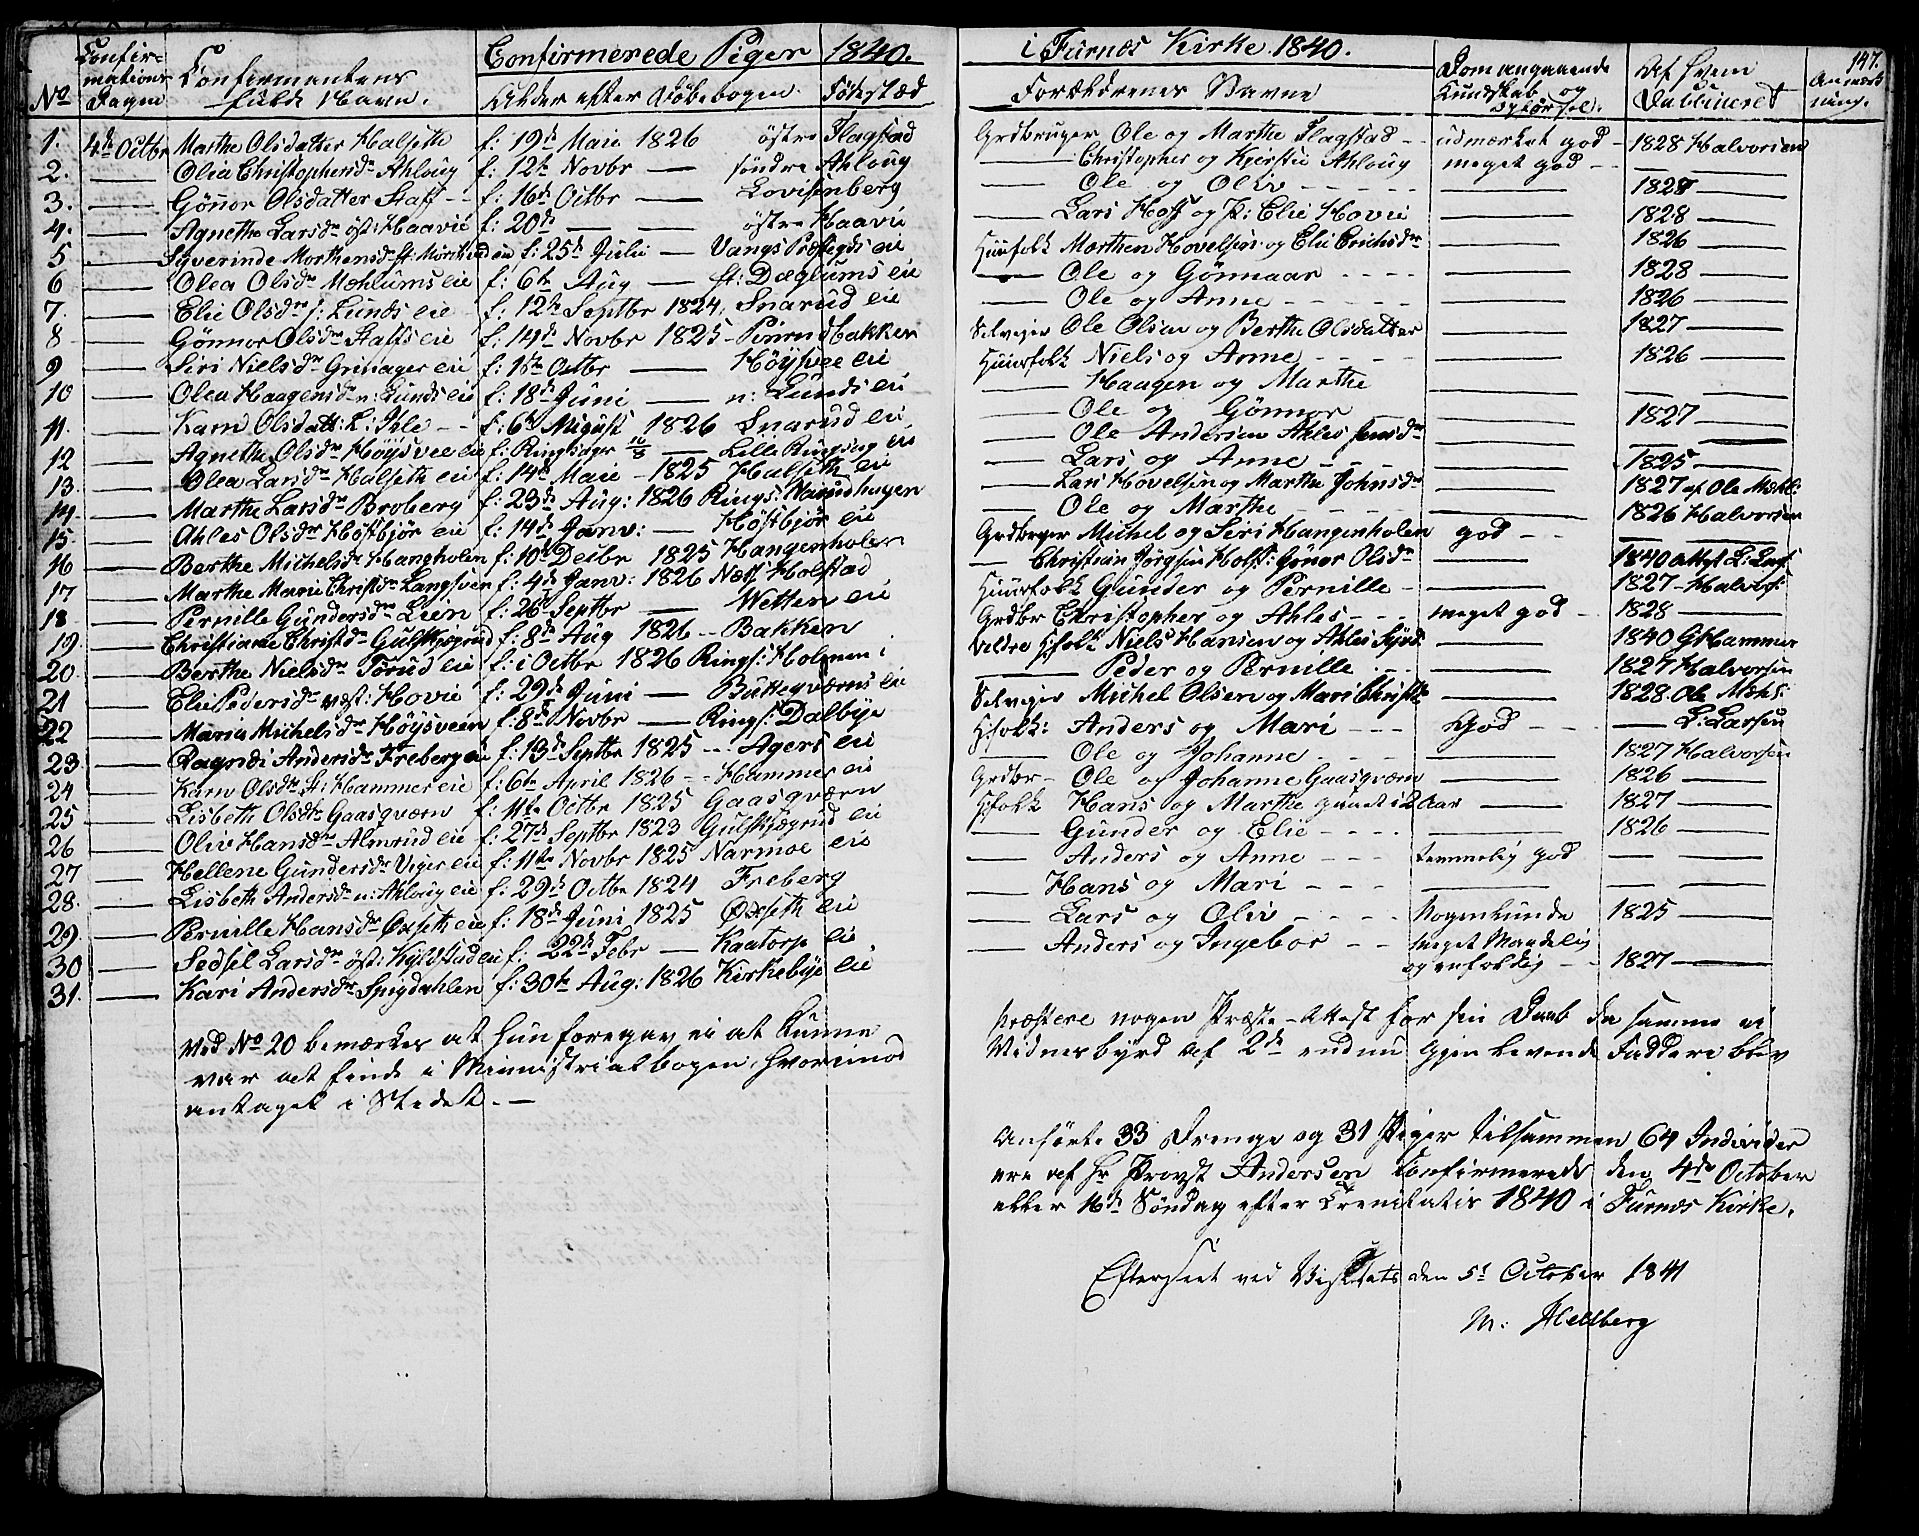 Confirmerede Piger 1840.
i Furnæs Kirke 1840.
147.
No
Confirmations Dagen
Confirmantens fulde Navn.
Alder efter Døbebogen.
Fødested
Forældrenes Navne
Dom angaaende Kundskab og Opførsel.
Af hvem Vaccineret
Anmærkning.
1. 4de Octbr Marthe Olsdatter Halseth f: 19de Mai 1826 østre Flagstad Grdbruger Ole og Marthe Flagstad udmærket god 1828 Halvorsen
2. Olia Christophersdr Ahloug f: 12te Novbr søndre Ahloug Christopher og Kjerstie Ahloug meget god
3. Gønnor Olsdatter Staff f: 16de Octbr Lovisenberg Ole og Oliv 1828
4. Agnethe Larsdr øst: Haavie f: 20de østre Haavie Lars Hoff og P: Elie Hovie 1828
5 Syverinde Morthensdr f: 25de Julii Vangs Præstegds eie Huusfolk Morthen Hovelsen og Elie Erichsdr 1826
6 Olea Olsdr Mæhlums eie f: 6te Aug st: Dæglums eie Ole og Gønnaar 1828
7. Elie Olsdr s: Lunds eie f: 12te Septbr 1824 Snarud eie Ole og Anne 1826
8 Gønnor Olsdr Staffs eie f: 14de Novbr 1825 Pornudbakken Selveier Ole Olsen og Berthe Olsdatter 1827
9 Siri Nielsdr Grinager eie f: 16te Octbr Høysvee eie Huusfolk Niels og Anne 1826
10 Olea Haagensdr n: Lunds eie f: 18de Juni n: Lunds eie Haagen og Marthe
11. Karn Olsdatt: L: Ihle f: 6te August 1826 Snarud eie Ole og Gønnor 1827
12 Agnethe Olsdr Høysvee eie f: Ringsager Lille Ringsag eie Ole Andersen Ahles Jensdr
13. Olea Larsdr Halseth eie f: 14de Maii 1825 Halseth eie Lars og Anne 1825
14 Marthe Larsdr Broberg f: 23de Aug: 1826 Rings: Narudhagen Lars Hovelsen og Marthe Johnsdr 1827 af Ole Mæhl:
15. Ahles Olsdr Høstbjør eie f: 14de Janv: Høstbjør eie Ole og Marthe 1826 Halvorsen
16 Berthe Michelsdr Hangholen f: 10de Decbr 1825 Hangenholen Grdbruger Michel og Siri Hangenholen god
17 Marthe Marie Christdr Langsveen f: 4de Janv: 1826 Næss Holstad Christian Jørgsen Holst: Gønor Olsdr 1840 Attest L: Lars.
18 Pernille Gundersdr Lien f: 26de Septbr Wetten eie Huusfolk Gunder og Pernille 1827 Halvors:
19. Christiane Christdr Gulskjøgrud f: 8de Aug 1826 Bakken Grdbr Christopher og Ahles meget god 1828
20. Berthe Nielsdr Torud eie f: i Octbr 1826 Rings: Holmen Veldre Hfolk Niels Hansen og Ahles Syvrd: 1840 G Hammer
21 Elie Pedersdr vest: Hovie f: 29de Juni Buttegværns eie Peder og Pernille 1827 Halvorsen
22 Maria Michelsdr Høysveen f: 8de Novbr Rings: Dalbye Selveier Michel Olsen og Mari Christdr 1828 Ole Mæhl:
23 Ragndi Andersdr Freberg eie f: 13de Septbr 1825 Agers eie Hfolk: Anders og Mari God L: Larsen
24 Karn Olsdr st: Hammer eie f: 6te April 1826 Hammer eie Ole og Johanne 1827 Halvorsen
25 Lisbeth Olsdr Gaasqværn f: 11te Octbr 1825 Gaasqværn Grdbr Ole og Johanne Gaasqværn 1826
26 Oliv Hansdr Almrud eie f: 27de Septbr 1823 Gulskjøgrud eie Hfolk Hans og Marthe gaaet i 2 Aar 1827
27 Hellene Gundersdr Viger eie f: 11te Novbr 1825 Narmoe eie Gunder og Elie 1826
28. Lisbeth Andersdr n: Ahloug eie f: 29de Octbr 1824 Freberg Anders og Anne temmelig god
29. Pernille Hansdr Oxseth eie f: 18de Juni 1825 Oxseth eie Hans og Mari
30 Sedsel Larsdr øst: Kylstad eie f: 22de Febr Kaatorp eie Lars og Oliv Nogen Kunde 1825
31. Kari Andersdr Spigdahlen f: 30te Aug: 1826 Kirkebye eie Anders og Ingebor meget Maadelig
og enfoldig 1827
Ved No 20 bemærkes at hun foregav ei at kunne
præstere nogen Præste-Attest for sin Daab da samme ei
var at finde i Ministrialbogen, hvorimod
Vidnesbyrd af 2de endnu Gjenlevende Faddere blev
antaget i Stedet. —
Anførte 33 Drenge og 31 Piger tilsammen 64 Individer
ere af Hr Provst Andersen confirmerede den 4de October
eller 16de Søndag efter Trenitatis 1840 i Furnes Kirke.
Efterseet ved Visitats den 5t October 1841
M: Hellberg